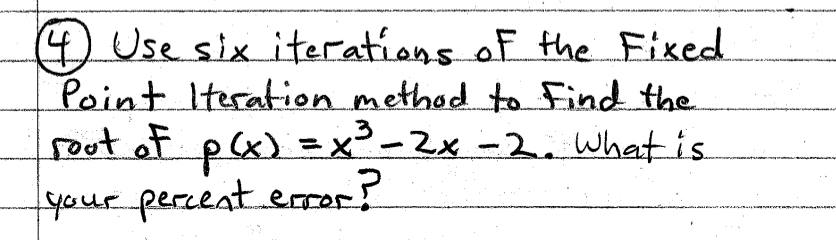 ④ Use six iterations of the Fixed
Point Iteration method to find the
root of p(x) = x³ - 2x - 2. What is
your percent error?